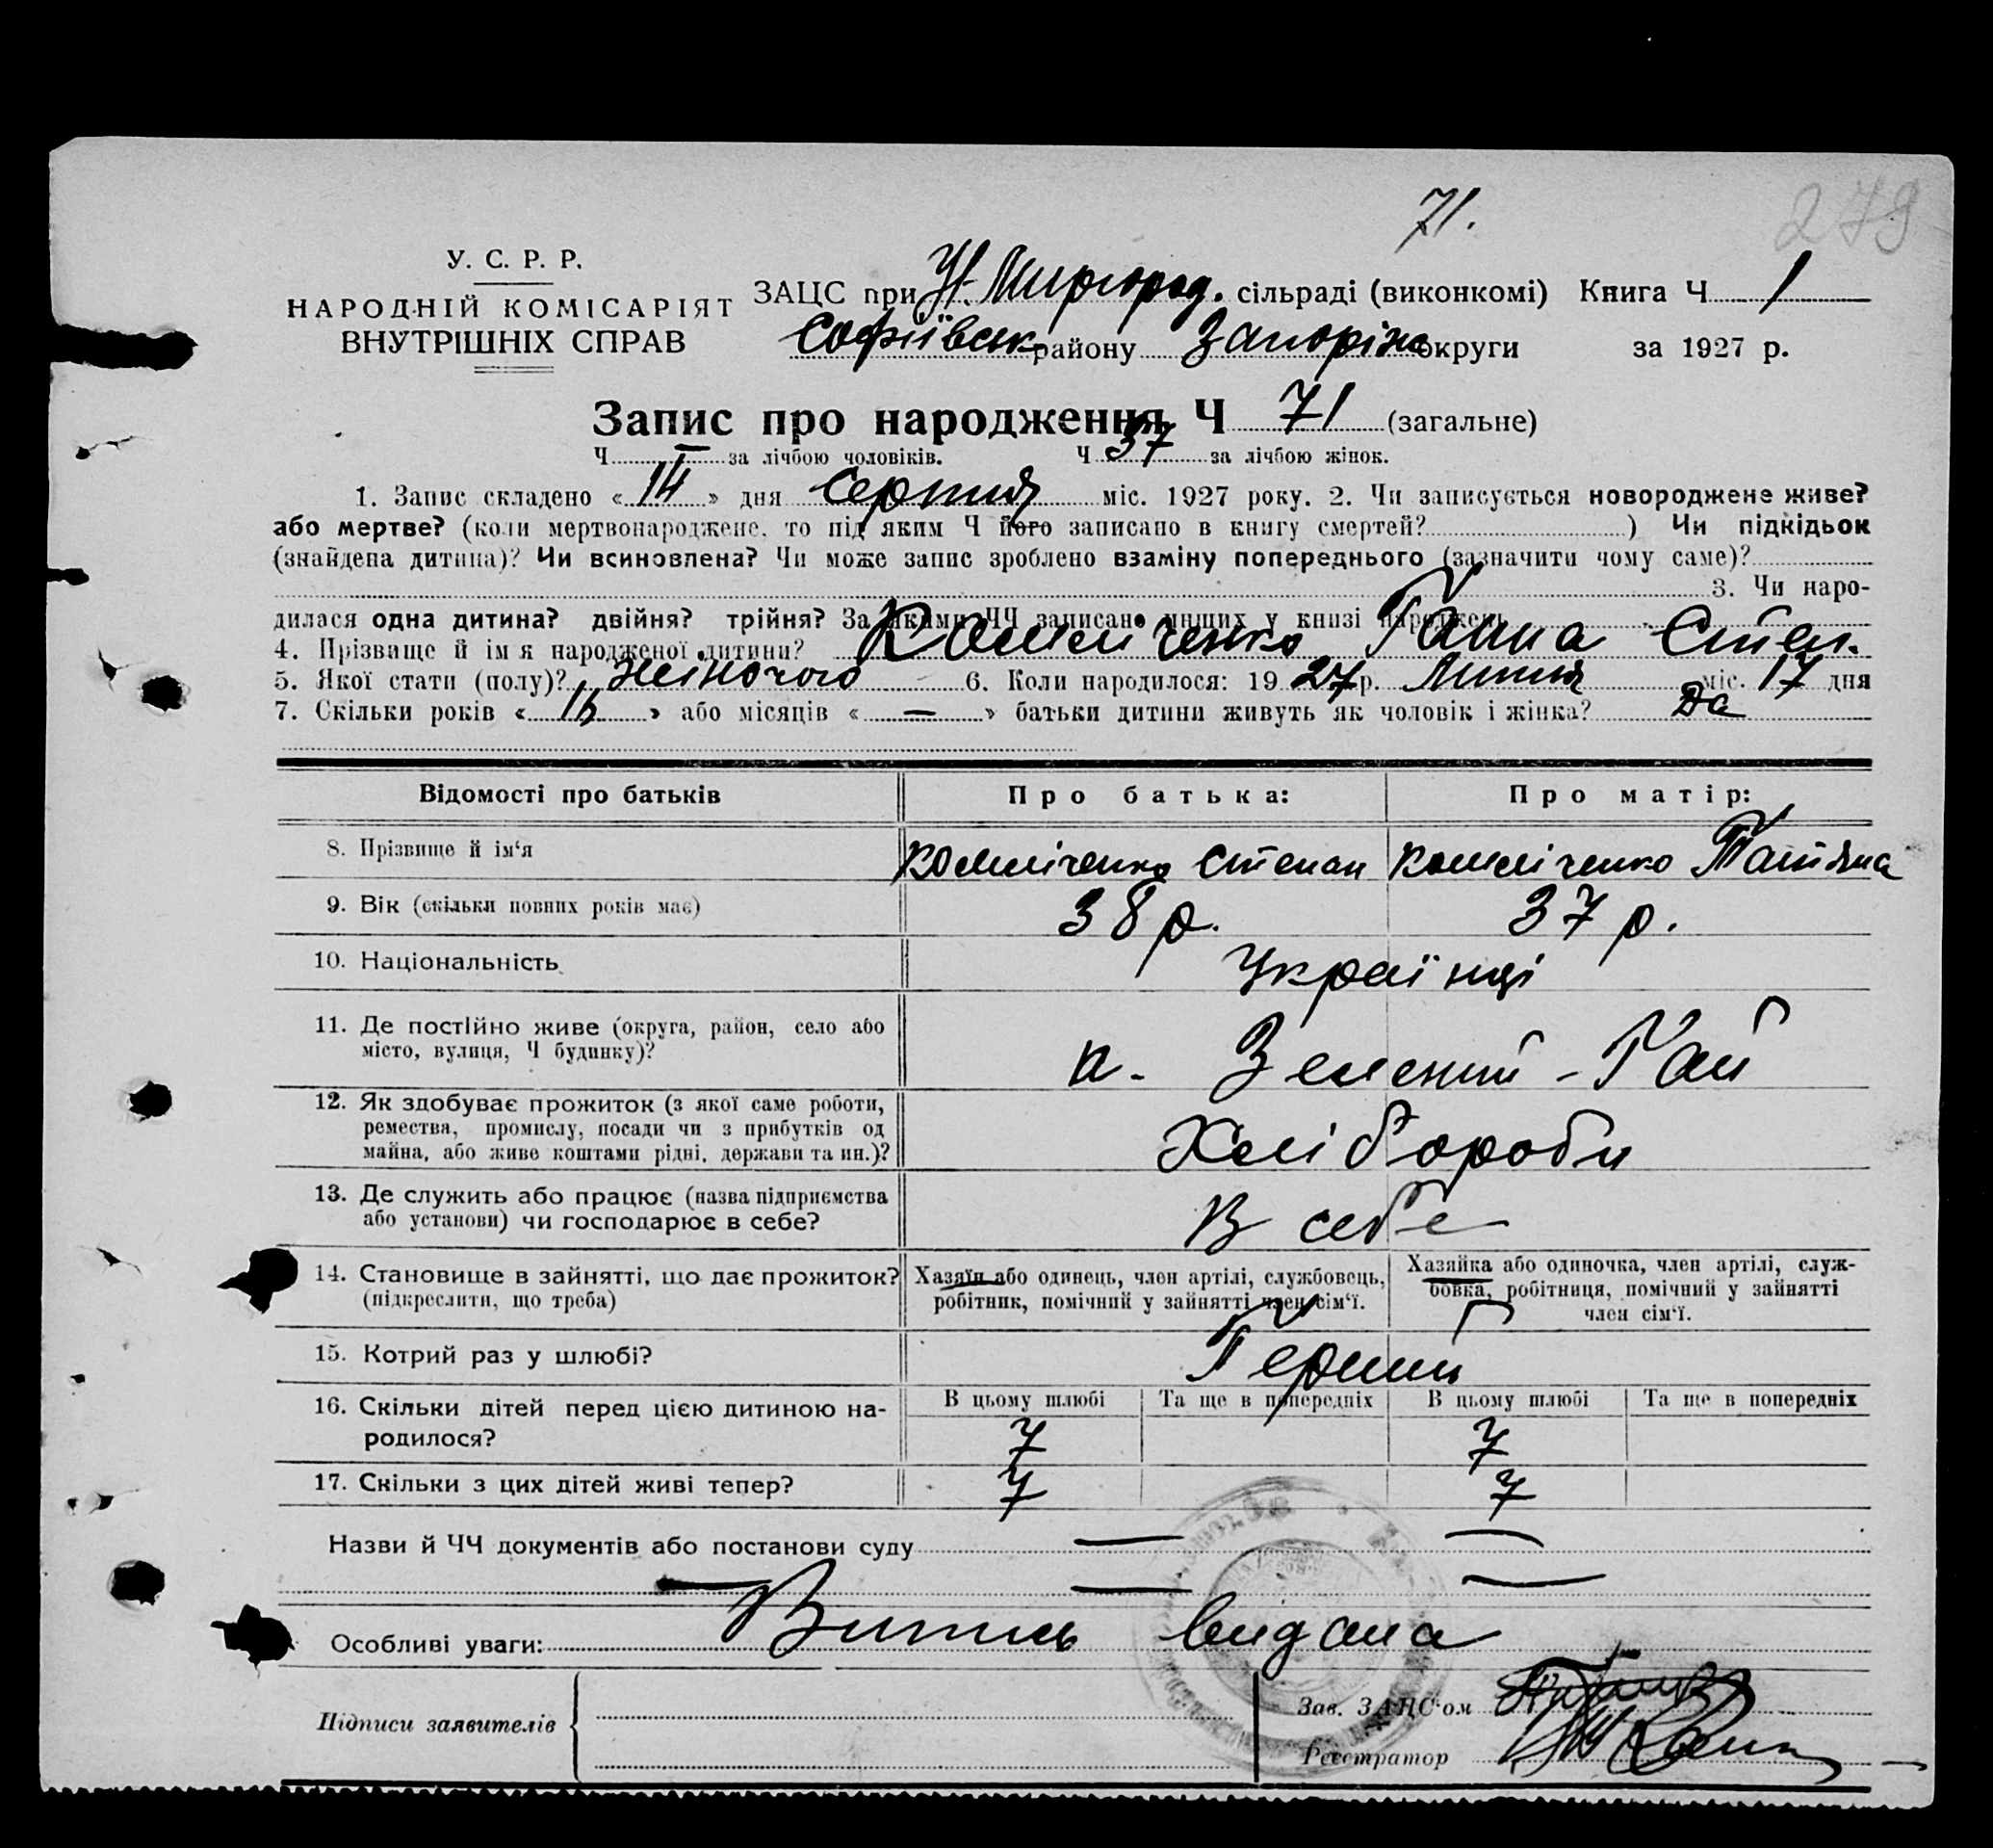 71.
279
У. С. Р. Р.
НАРОДНІЙ КОМІСАРІЯТ
ВНУТРІШНІХ СПРАВ
ЗАЦС при Н-Миргород. сільраді (виконкомі) Книга Ч 1
Софіївськ району Запоріж округи за 1927 р.
Запис про народження Ч 71 (загальне)
Ч. за лічбою чоловіків. Ч 37 за лічбою жінок.
1. Запис складено «14» дня Серпня міс. 1927 року. 2. Чи записується новороджене живе?
або мертве? (коли мертвонароджене, то під яким Ч його записано в книгу смертей? ) Чи підкідьок
(знайдена дитина)? Чи всиновлена? Чи може запис зроблено взаміну попереднього (зазначити чому саме)?
3. Чи наро-
дилася одна дитина? двійня? трійня? За якими ЧЧ записано инших у книзі народжень
4. Прізвище й ім я народженої дитини? Ганна Степ.
5. Якої стати (полу)? жіночого 6. Коли народилося: 1927 р. Липня міс. 17 дня
7. Скільки років « » або місяців «—» батьки дитини живуть як чоловік і жінка? Да
Відомості про батьків Про батька: Про матір:
8. Прізвище й ім'я Степан Татьяна
9. Вік (скільки повних років має) 38 р. 37 р.
10. Національність Українці
11. Де постійно живе (округа, район, село або
місто, вулиця, Ч будинку)? п. Зелений-Гай
12. Як здобуває прожиток (з якої саме роботи,
ремества, промислу, посади чи з прибутків од
майна, або живе коштами рідні, держави та ин.)? Хлібороби
13. Де служить або працює (назва підприємства
або установи) чи господарює в себе? В себе
14. Становище в зайнятті, що дає прожиток?
(підкреслити, що треба)
Хазяїн або одинець, член артілі, службовець,
робітник, помічний у зайнятті член сім'ї.
Хазяйка або одиночка, член артілі, служ-
бовка, робітниця, помічний у зайнятті
член сім'ї.
15. Котрий раз у шлюбі? Перший
16. Скільки дітей перед цією дитиною на-
родилося?
В цьому шлюбі Та ще в попередніх В цьому шлюбі Та ще в попередніх
7 7
17. Скільки з цих дітей живі тепер? 7 7
Назви й ЧЧ документів або постанови суду — —
— — —
Особливі уваги: Випись видана
Підписи заявителів
Зав. ЗАЦС'ом
Реєстратор